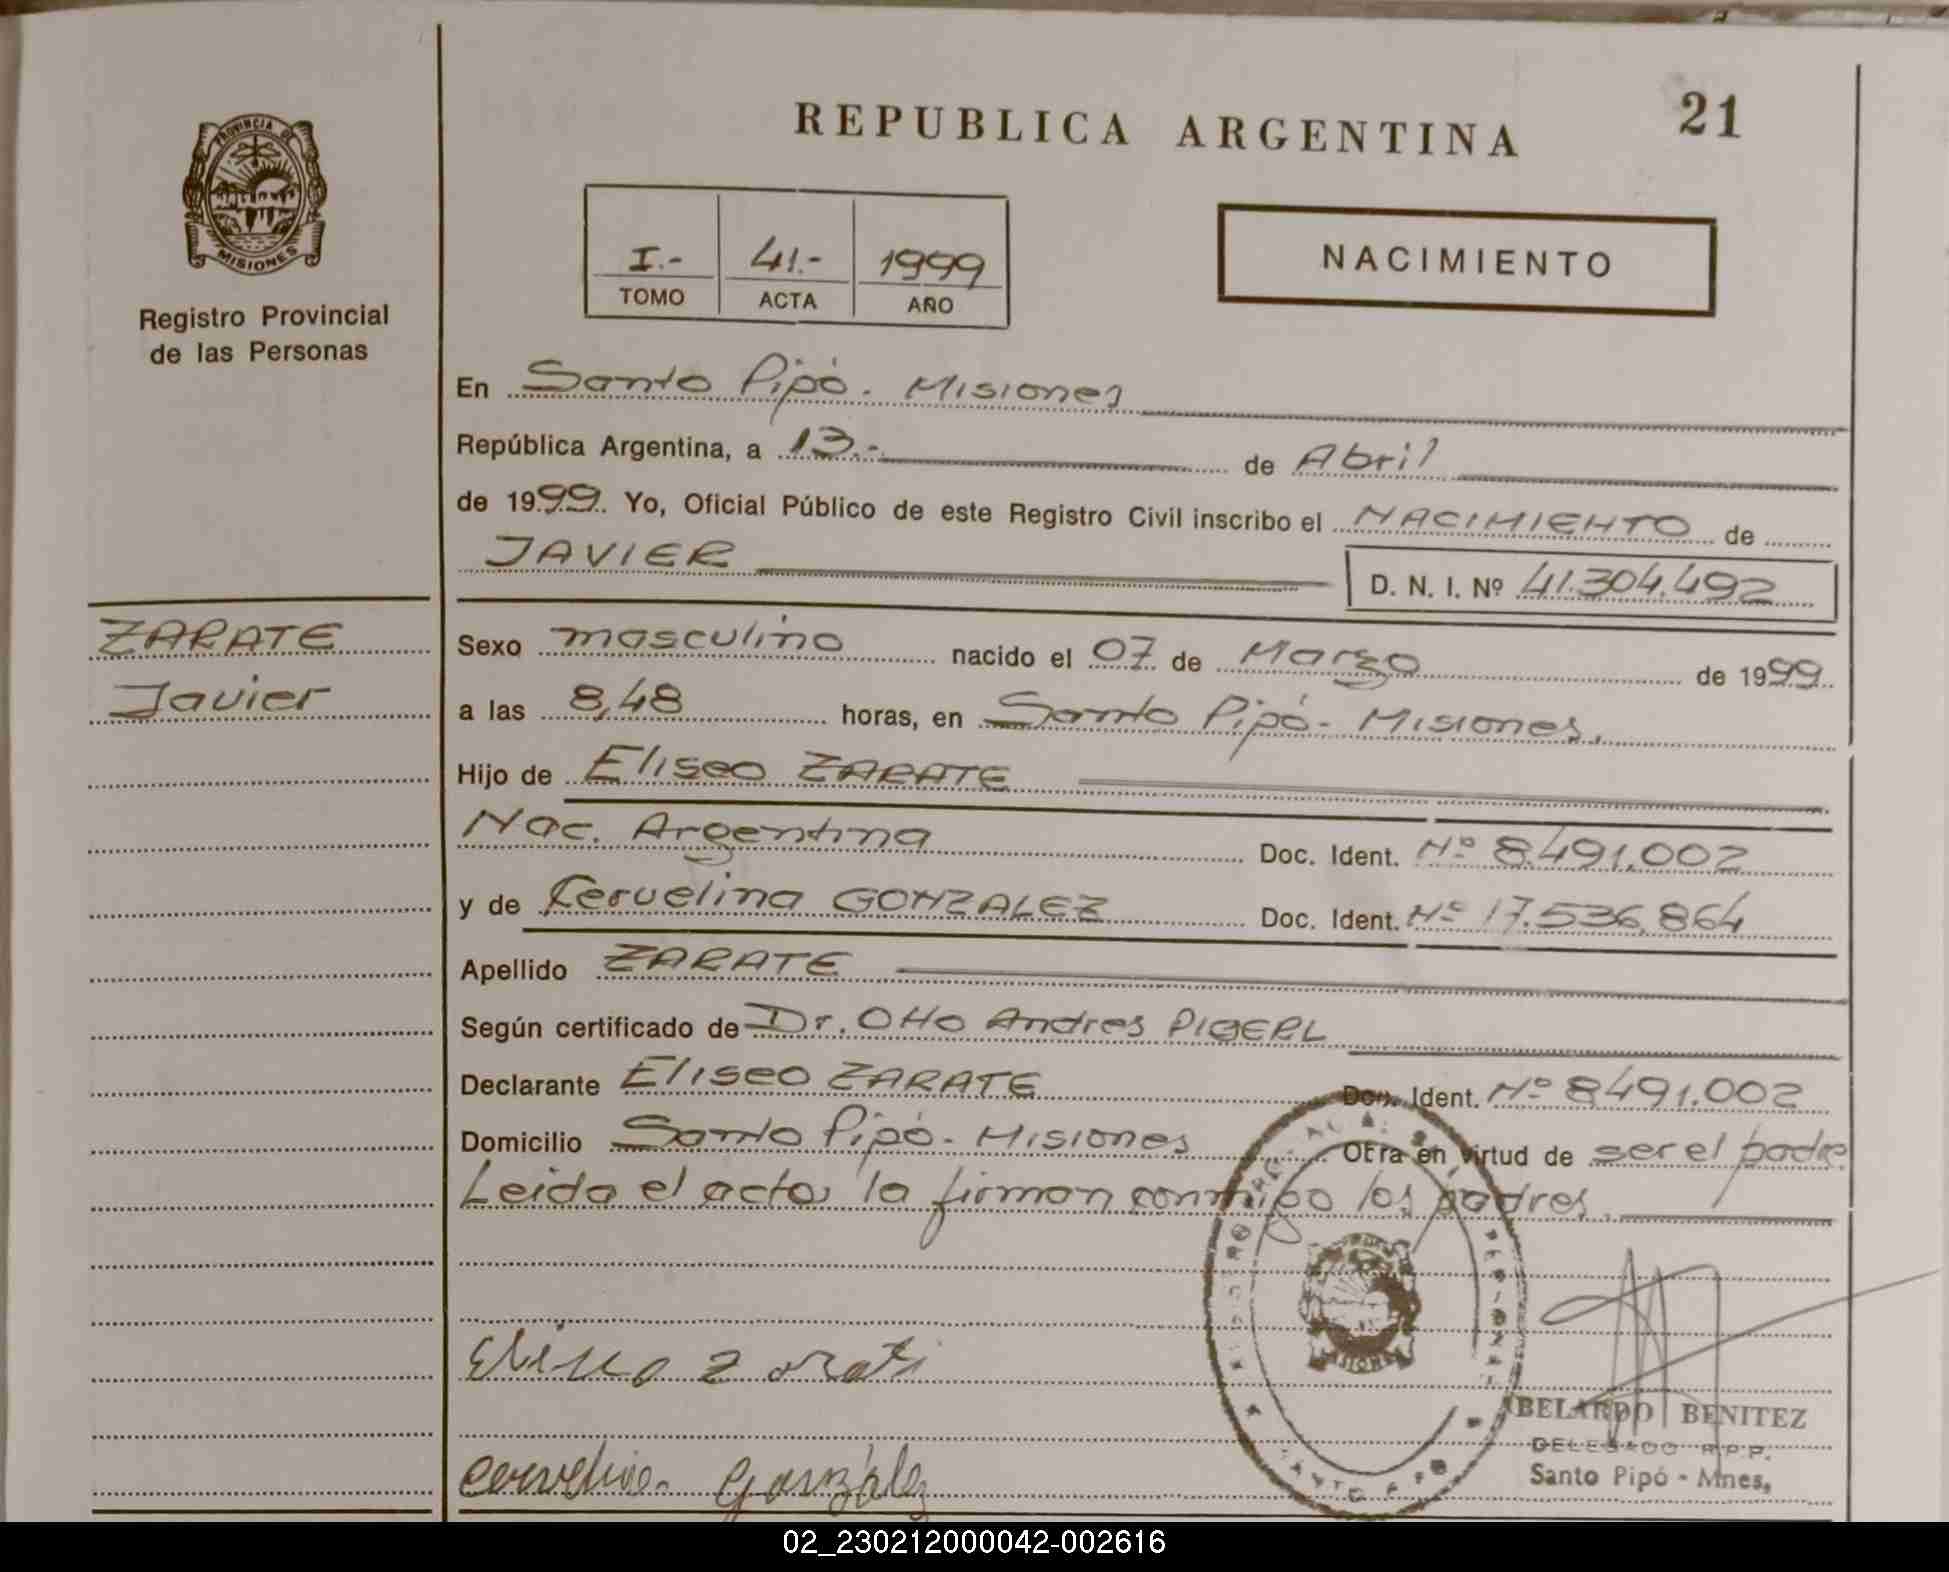 REPUBLICA ARGENTINA
21
PROVINCIA DE
MISIONES
Registro Provincial
de las Personas
I.- 41.- 1999
TOMO ACTA AÑO
NACIMIENTO
En Santo Pipó. Misiones
República Argentina, a 13.- de Abril
de 1999. Yo, Oficial Público de este Registro Civil inscribo el NACIMIENTO de
JAVIER
D. N. I. Nº 41.304.492
ZARATE
Javier
Sexo masculino nacido el 07 de Marzo de 1999
a las 8,48 horas, en Santo Pipó - Misiones.
Hijo de Eliseo ZARATE
Nac. Argentina Doc. Ident. Nº 8.491.002
y de Cervelina GONZALEZ Doc. Ident. Nº 17.536.864
Apellido ZARATE
Según certificado de Dr. Otto Andres PIGERL
Declarante Eliseo ZARATE Doc. Ident. Nº 8491.002
Domicilio Santo Pipó - Misiones Obra en virtud de ser el padre
Leida el acta, la firman conmigo los padres.
Eliseo Zarate
Cervelina González
ABELARDO BENITEZ
DELEGADO R.P.P.
Santo Pipó - Mnes,
02_230212000042-002616